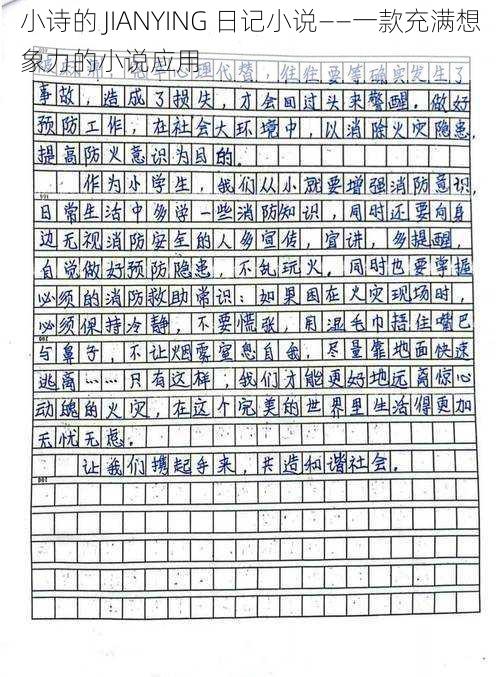 小诗的 JIANYING 日记小说——一款充满想
象力的小说应用
心理代替，往往要等确实发生了
事故，造成了损失，才会回过头来警醒，做好
预防工作，在社会大环境中，以消除火灾隐患，
提高防火意识为目的。
作为小学生，我们从小就要增强消防意识，
日常生活中多学一些消防知识，同时还要向身
边无视消防安全的人多宣传，宣讲，多提醒，
自觉做好预防隐患，不乱玩火。同时也要掌握
必须的消防救助常识：如果困在火灾现场时，
必须保持冷静，不要慌张，用湿毛巾捂住嘴巴
与鼻子，不让烟雾窒息自我，尽量靠地面快速
逃离……只有这样，我们才能更好地远离惊心
动魄的火灾，在这个完美的世界里生活得更加
无忧无虑。
让我们携起手来，共造和谐社会。